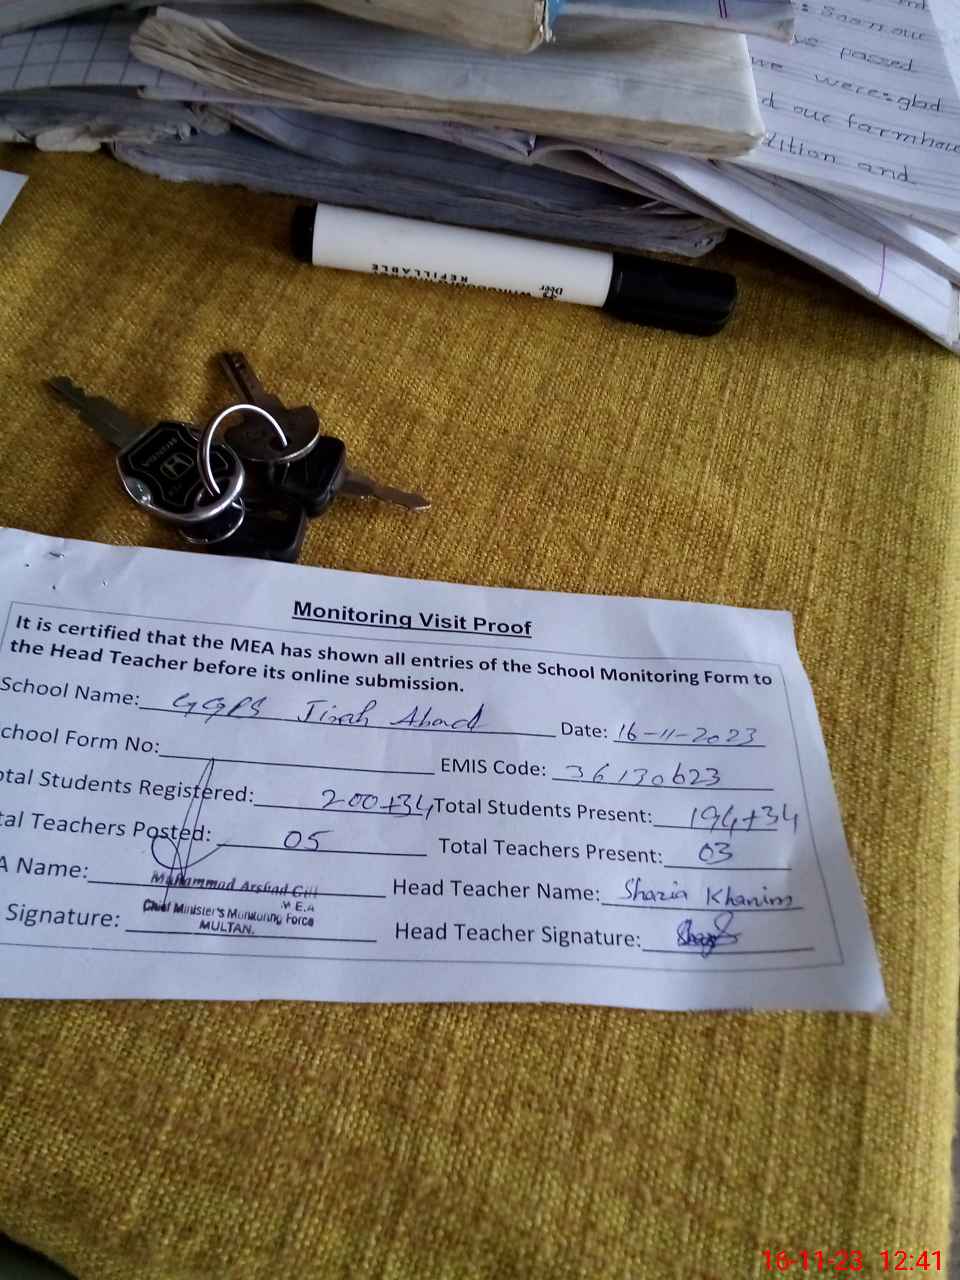 Soon our
passed
we were glad
our farmhou
and
REFILLABLE
Deer
HONDA
H
Monitoring Visit Proof
It is certified that the MEA has shown all entries of the School Monitoring Form to
the Head Teacher before its online submission.
School Name: GGPS Jinah Abad Date: 16-11-2023
chool Form No: EMIS Code: 36130623
otal Students Registered: 200+34 Total Students Present: 194+34
tal Teachers Posted: 05 Total Teachers Present: 03
A Name: Muhammad Arshad Gill Head Teacher Name: Shazia Khanim
M E.A
Chief Minister's Monitoring Force
MULTAN.
Signature: Head Teacher Signature:
16-11-23 12:41